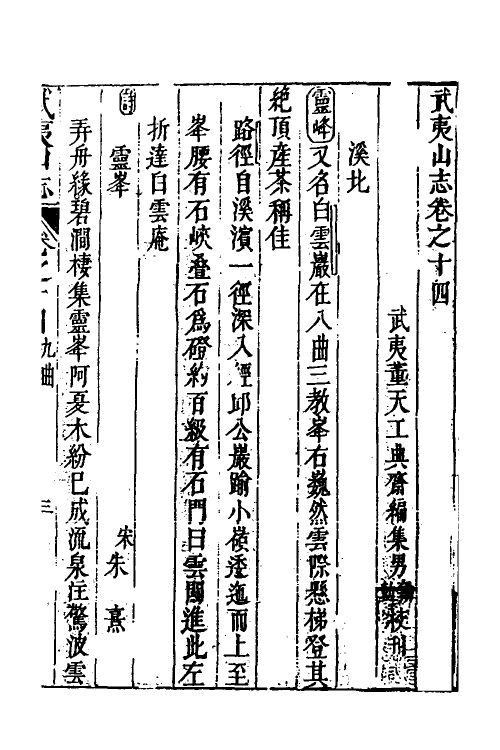 武夷山志卷之十四
武夷董天工典齋編集男校刊
溪北
靈峰又名白雲巖在八曲三教峯右巍然雲際懸梯登其
絶頂産茶稱佳
路徑自溪濱一徑深入經邱公巖踰小嶺逶迤而上至
峯腰有石峽叠石爲磴約百級有石門曰雲關進此左
折達白雲庵
詩
靈峯
宋朱熹
弄舟緣碧澗棲集靈峯阿夏木紛已成流泉注驚波雲
武夷山志
卷之十四九曲
三